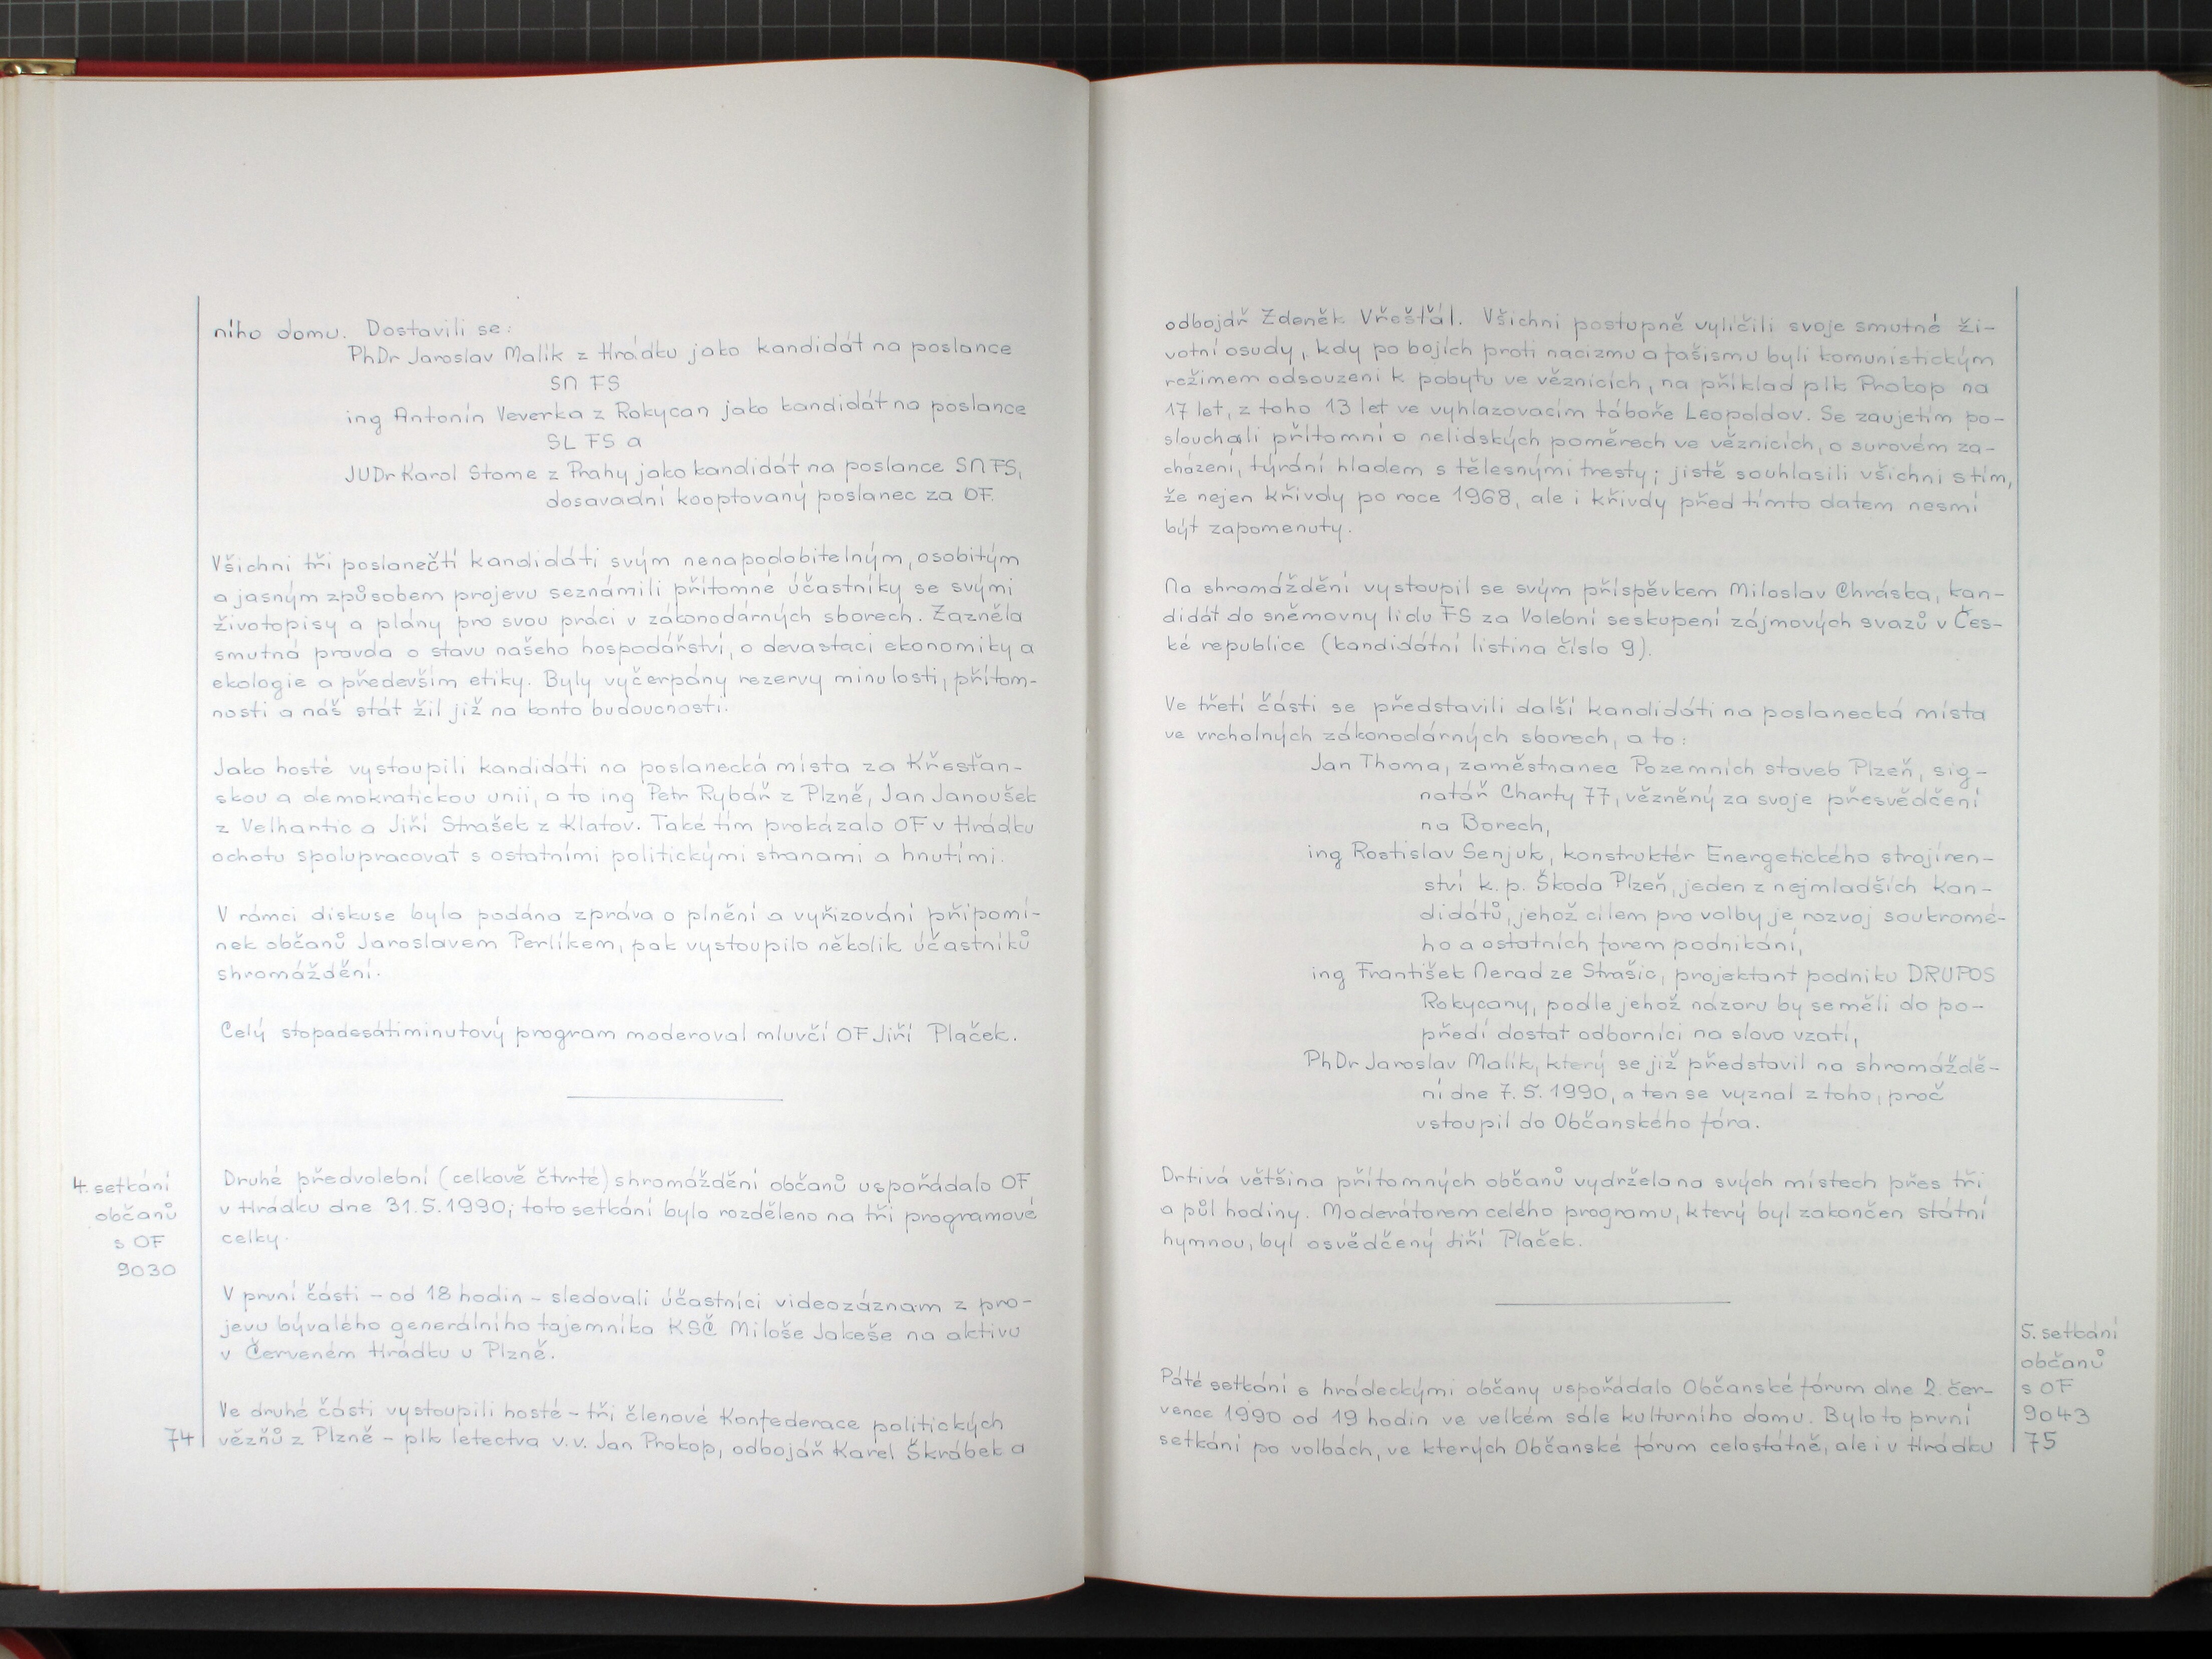 ního domu. Dostavili se:
PhDr Jaroslav Malík z Hrádku jako kandidát na poslance
SN FS
ing Antonín Veverka z Rokycan jako kandidát na poslance
SL FS a
JUDr Karol Stome z Prahy jako kandidát na poslance SN FS,
dosavadní kooptovaný poslanec za OF.
Všichni tři poslanečtí kandidáti svým nenapodobitelným, osobitým
a jasným způsobem projevu seznámili přítomné účastníky se svými
životopisy a plány pro svou práci v zákonodárných sborech. Zazněla
smutná pravda o stavu našeho hospodářství, o devastaci ekonomiky a
ekologie a především etiky. Byly vyčerpány rezervy minulosti, přítom-
nosti a náš stát žil již na konto budoucnosti.
Jako hosté vystoupili kandidáti na poslanecká místa za Křesťan-
skou a demokratickou unii, a to ing Petr Rybář z Plzně, Jan Janoušek
z Velhartic a Jiří Strašek z Klatov. Také tím prokázalo OF v Hrádku
ochotu spolupracovat s ostatními politickými stranami a hnutími.
V rámci diskuse byla podána zpráva o plnění a vyřizování připomí-
nek občanů Jaroslavem Perlíkem, pak vystoupilo několik účastníků
shromáždění.
Celý stopadesátiminutový program moderoval mluvčí OF Jiří Plaček.
4. setkání
občanů
s OF
9030
Druhé předvolební (celkově čtvrté) shromáždění občanů uspořádalo OF
v Hrádku dne 31.5.1990; toto setkání bylo rozděleno na tři programové
celky.
V první části – od 18 hodin – sledovali účastníci videozáznam z pro-
jevu bývalého generálního tajemníka KSČ Miloše Jakeše na aktivu
v Červeném Hrádku u Plzně.
Ve druhé části vystoupili hosté – tři členové Konfederace politických
vězňů z Plzně – plk letectva v.v. Jan Prokop, odbojář Karel Škrábek a
74
odbojář Zdeněk Vřešťál. Všichni postupně vylíčili svoje smutné ži-
votní osudy, kdy po bojích proti nacizmu a fašismu byli komunistickým
režimem odsouzeni k pobytu ve věznicích, na příklad plk Prokop na
17 let, z toho 13 let ve vyhlazovacím táboře Leopoldov. Se zaujetím po-
slouchali přítomní o nelidských poměrech ve věznicích, o surovém za-
cházení, týrání hladem s tělesnými tresty; jistě souhlasili všichni s tím,
že nejen křivdy po roce 1968, ale i křivdy před tímto datem nesmí
být zapomenuty.
Na shromáždění vystoupil se svým příspěvkem Miloslav Chráska, kan-
didát do sněmovny lidu FS za Volební seskupení zájmových svazů v Čes-
ké republice (kandidátní listina číslo 9).
Ve třetí části se představili další kandidáti na poslanecká místa
ve vrcholných zákonodárných sborech, a to:
Jan Thoma, zaměstnanec Pozemních staveb Plzeň, sig-
natář Charty 77, vězněný za svoje přesvědčení
na Borech,
ing Rostislav Senjuk, konstruktér Energetického strojíren-
ství k.p. Škoda Plzeň, jeden z nejmladších kan-
didátů, jehož cílem pro volby je rozvoj soukromé-
ho a ostatních forem podnikání,
ing František Nerad ze Strašic, projektant podniku DRUPOS
Rokycany, podle jehož názoru by se měli do po-
předí dostat odborníci na slovo vzatí,
PhDr Jaroslav Malík, který se již představil na shromáždě-
ní dne 7.5.1990, a ten se vyznal z toho, proč
vstoupil do Občanského fóra.
Drtivá většina přítomných občanů vydržela na svých místech přes tři
a půl hodiny. Moderátorem celého programu, který byl zakončen státní
hymnou, byl osvědčený Jiří Plaček.
5. setkání
občanů
s OF
9043
Páté setkání s hrádeckými občany uspořádalo Občanské fórum dne 2. čer-
vence 1990 od 19 hodin ve velkém sále kulturního domu. Bylo to první
setkání po volbách, ve kterých Občanské fórum celostátně, ale i v Hrádku
75